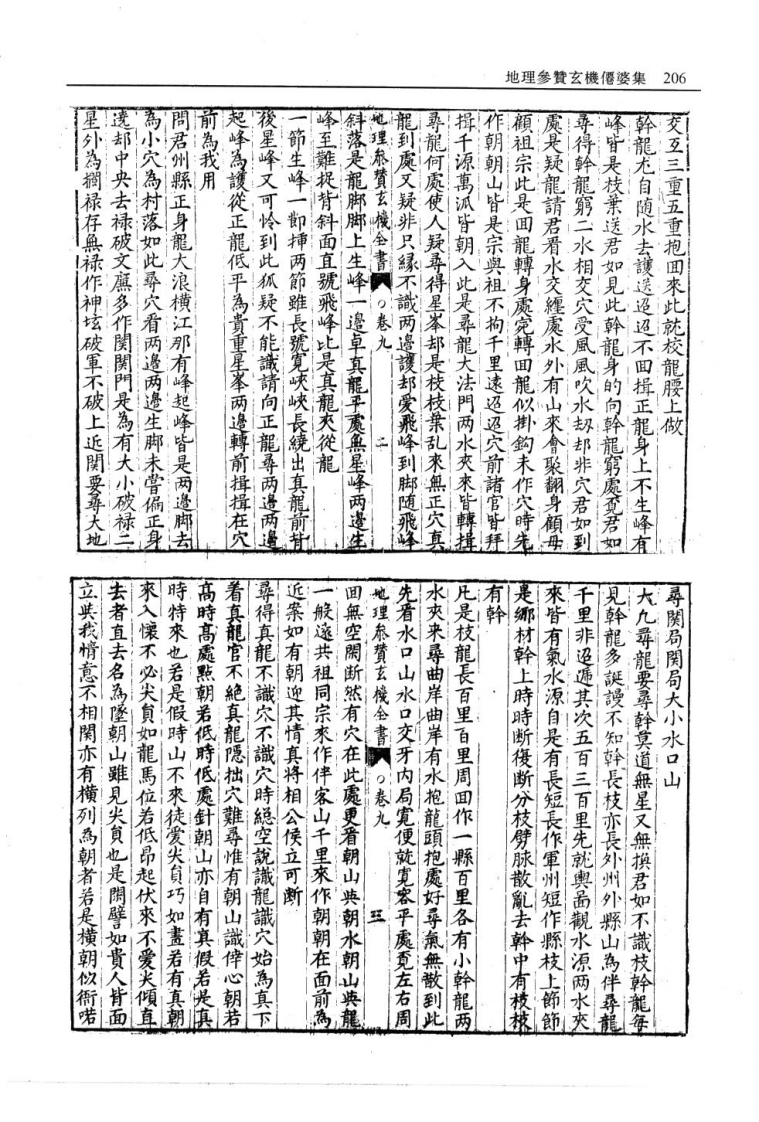 地理參贊玄機僊婆集　206
交互三重五重抱回來此就枝龍腰上做
幹龍尤自随水去護送迢迢不回揖正龍身上不生峰有
峰皆是枝葉送君如見此幹龍身的向幹龍窮處覔君如
尋得幹龍窮二水相交穴受風風吹水刼却非穴君如到
處是疑龍請君看水交纏處水外有山來會聚翻身顧母
顧祖宗此是回龍轉身處宛轉回龍似掛鈎未作穴時先
作朝朝山皆是宗與祖不拘千里遠迢迢穴前諸官皆拜
揖千源萬派皆朝入此是尋龍大法門两水夾來皆轉揖
尋龍何處使人疑尋得星峯却是枝枝葉乱來無正穴真
龍到處又疑非只緣不識两邊護却愛飛峰到脚随飛峰
地理叅贊玄機全書　卷九　二
斜落是龍脚脚上生峰一邊卓真龍平處無星峰两邊生
峰至難捉背斜面直號飛峰比是真龍夾從龍
一節生峰一節揷两節雖長號寛峽峽長繞出真龍前背
後星峰又可怜到此狐疑不能識請向正龍尋两邊两邊
起峰為護從正龍低平為貴重星峯两邊轉前揖揖在穴
前為我用
問君州縣正身龍大浪横江那有峰起峰皆是两邊脚去
為小穴為村落如此尋穴看两邊两邊生脚未嘗偏正身
遶却中央去禄破文廉多作関関門是為有大小破禄二
星外為攔禄存無禄作神坛破軍不破上近関要尋大地
尋関局関局大小水口山
大凢尋龍要尋幹莫道無星又無換君如不識枝幹龍每
見幹龍多誕謾不知幹長枝亦長外州外縣山為伴尋龍
千里非迢逓其次五百三百里先就輿啚觀水源两水夾
來皆有氣水源自是有長短長作軍州短作縣枝上節節
是鄉村幹上時時断復断分枝劈脉散亂去幹中有枝枝
有幹
凡是枝龍長百里百里周回作一縣百里各有小幹龍两
水夾來尋曲岸曲岸有水抱龍頭抱處好尋氣無散到此
先看水口山水口交牙内局寛便就寛容平處覔左右周
地理叅贊玄機全書　卷九　三
回無空閑断然有穴在此處更看朝山與朝水朝山與龍
一般遠共祖同宗來作伴客山千里來作朝朝在面前為
近案如有朝迎其情真將相公侯立可断
尋得真龍不識穴不識穴時緫空説識龍識穴始為真下
着真龍官不絶真龍隠拙穴難尋惟有朝山識倖心朝若
高時高處點朝若低時低處針朝山亦自有真假若是真
時特來也若是假時山不來徒愛尖負巧如畫若有真朝
來入懷不必尖負如龍馬位若低昂起伏來不愛尖傾直
去者直去名為墜朝山雖見尖負也是閑譬如貴人背面
立與我情意不相関亦有横列為朝者若是横朝似衙喏